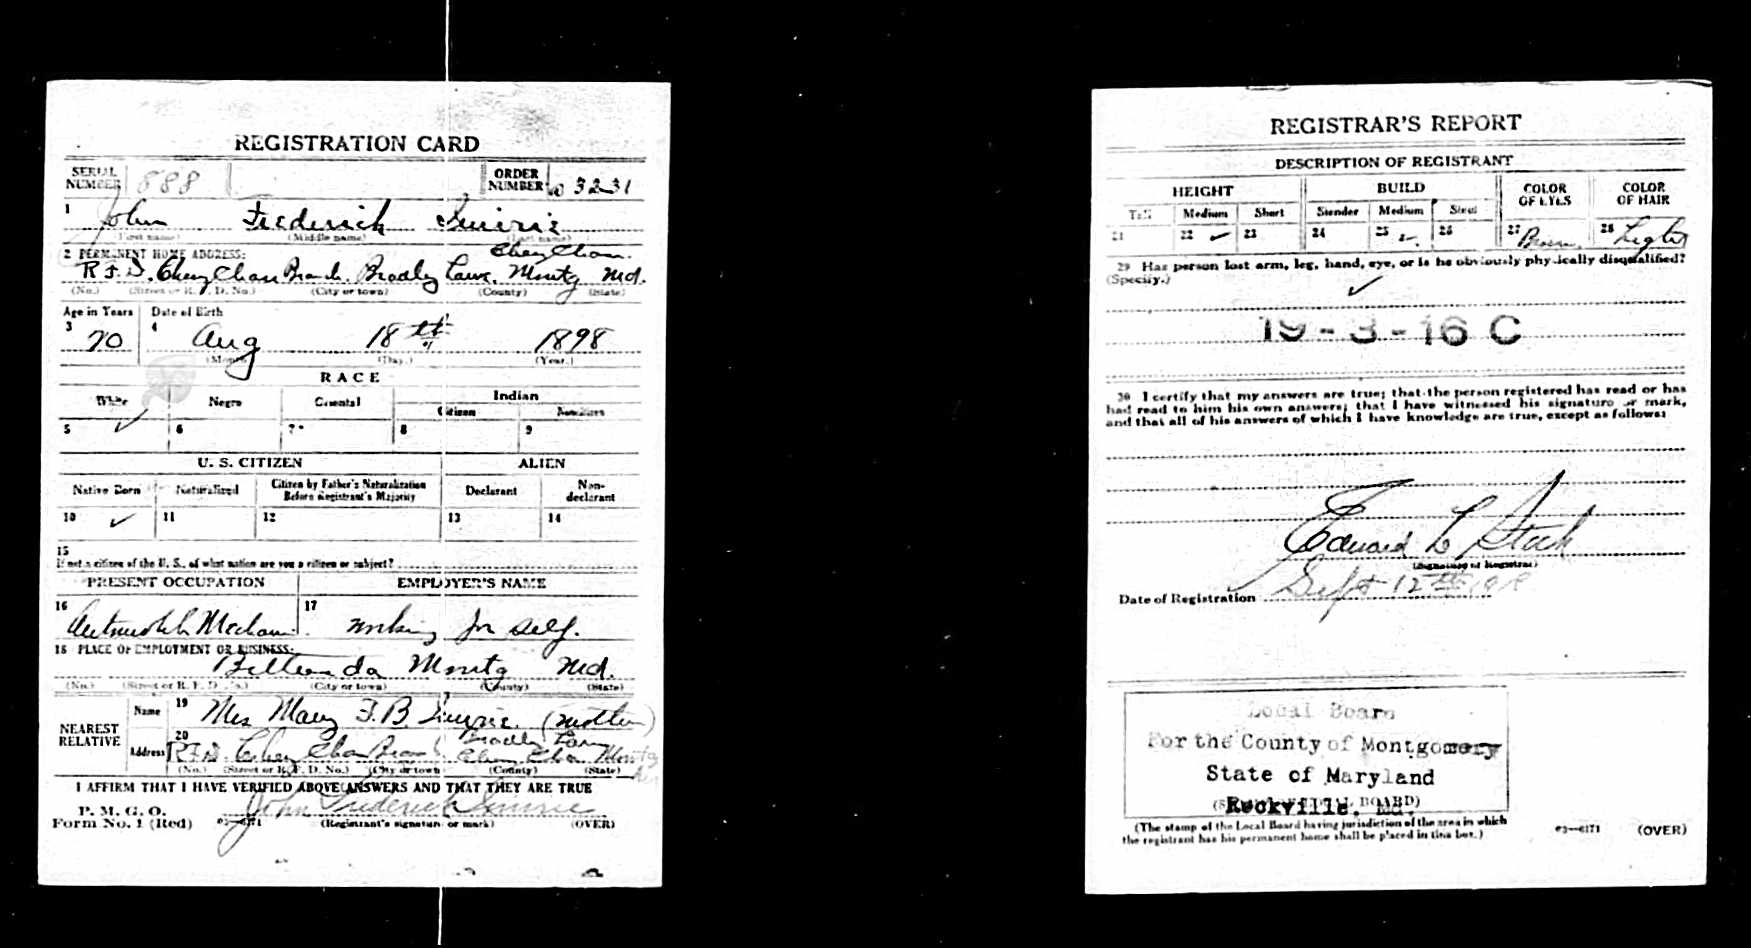 REGISTRATION CARD
SERIAL NUMBER 888 ORDER NUMBER 3231
1 John Frederick
(First name) (Middle name) (Last name)
2 PERMANENT HOME ADDRESS: Chevy Chase
R.F.D. Chevy Chase Branch. Bradley Lane, Montg Md.
(No.) (Street or R. F. D. No.) (City or town) (County) (State)
Age in Years Date of Birth
3 20 4 Aug 18th 1898
(Month) (Day.) (Year.)
RACE
White Negro Oriental Indian
Citizen Noncitizen
5 ✓ 6 7 8 9
U. S. CITIZEN ALIEN
Native Born Naturalized Citizen by Father's Naturalization Before Registrant's Majority Declarant Non-declarant
10 ✓ 11 12 13 14
15
If not a citizen of the U. S., of what nation are you a citizen or subject?
PRESENT OCCUPATION EMPLOYER'S NAME
16 Automobile Mechanic 17 working for self.
18 PLACE OF EMPLOYMENT OR BUSINESS:
Montg Md.
(No.) (Street or R. F. D. No.) (City or town) (County) (State)
NEAREST RELATIVE
Name 19 Mrs Mary F. B. (mother)
Address 20 Bradley Lane
R.F.D. Chevy Chase Branch Chevy Chase Montg
(No.) (Street or R. F. D. No.) (City or town) (County) (State)
I AFFIRM THAT I HAVE VERIFIED ABOVE ANSWERS AND THAT THEY ARE TRUE
P. M. G. O.
Form No. 1 (Red) 03—6171 John Frederick
(Registrant's signature or mark) (OVER)
REGISTRAR'S REPORT
DESCRIPTION OF REGISTRANT
HEIGHT BUILD COLOR OF EYES COLOR OF HAIR
Tall Medium Short Slender Medium Stout
21 22 ✓ 23 24 25 ✓ 26 27 Brown 28 Light
29 Has person lost arm, leg, hand, eye, or is he obviously physically disqualified?
(Specify.)
✓
19-3-16 C
30 I certify that my answers are true; that the person registered has read or has
had read to him his own answers; that I have witnessed his signature or mark,
and that all of his answers of which I have knowledge are true, except as follows:
Edward L
(Signature of Registrar)
Date of Registration Sept 12th 1918
Local Board
For the County of Montgomery
State of Maryland
Rockville, Md.
(STAMP OF LOCAL BOARD)
(The stamp of the Local Board having jurisdiction of the area in which
the registrant has his permanent home shall be placed in this box.)
03—6171 (OVER)